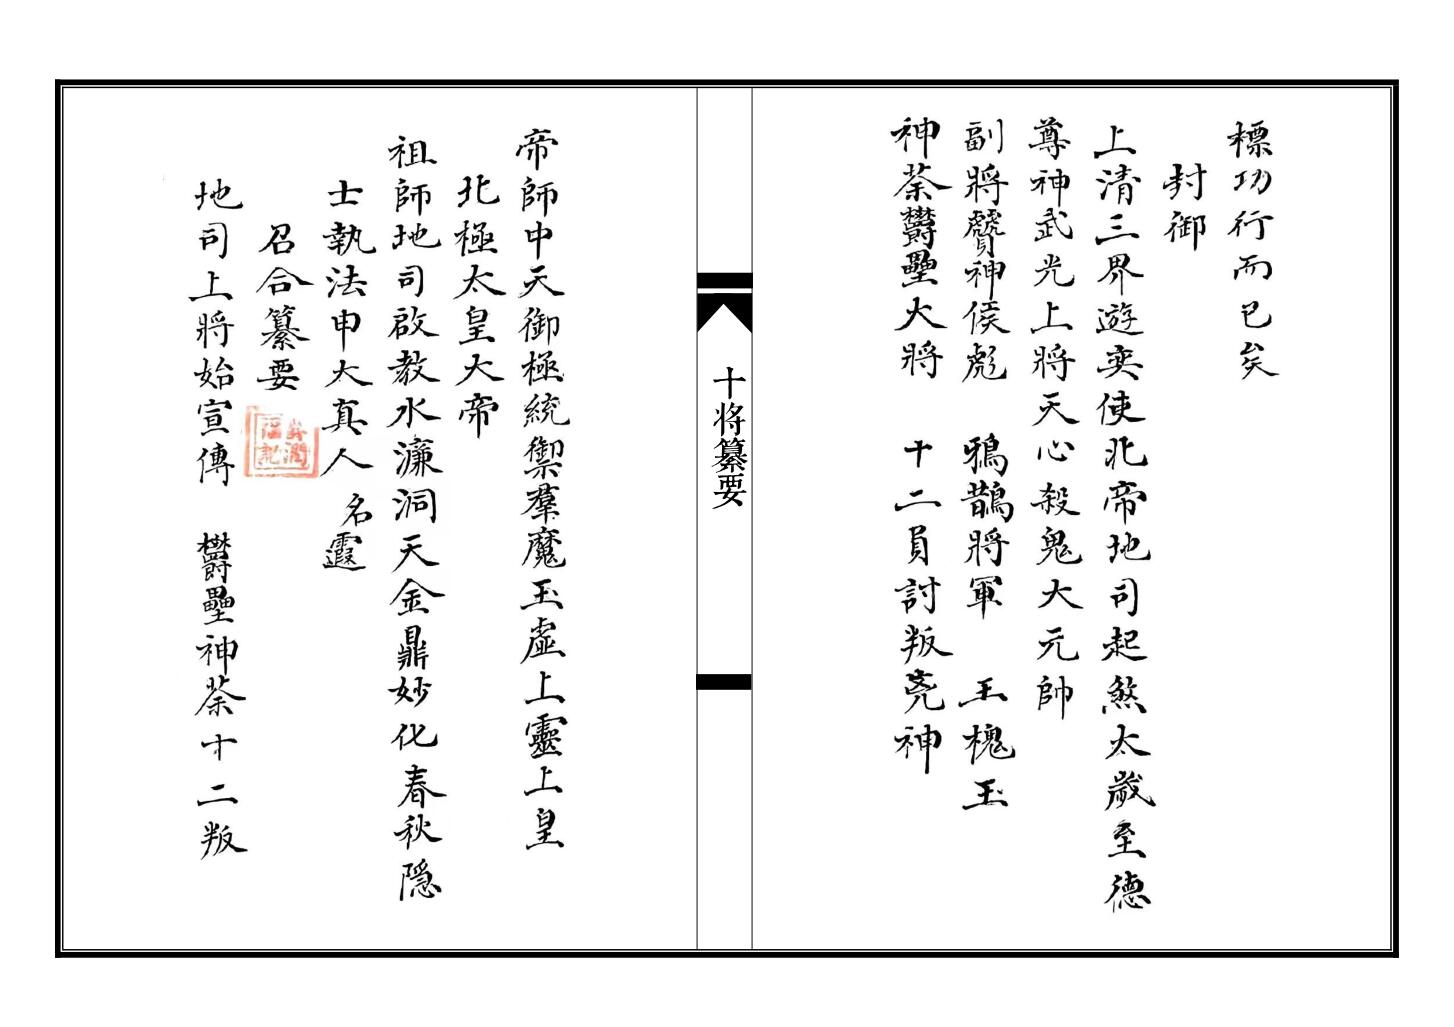 標功行而已矣
封御
上清三界遊奕使北帝地司起煞太歲至德
尊神武光上將天心殺鬼大元帥
副將賢神侯彪 鴉鵲將軍 王槐玉
神荼欝壘大將 十二員討叛兇神
十将纂要
帝師中天御極統禦羣魔玉虛上靈上皇
北極太皇大帝
祖師地司啟教水濂洞天金鼎妙化春秋隱
士執法申大真人 名霞
召合纂要
地司上將始宣傳 欝壘神荼十二叛